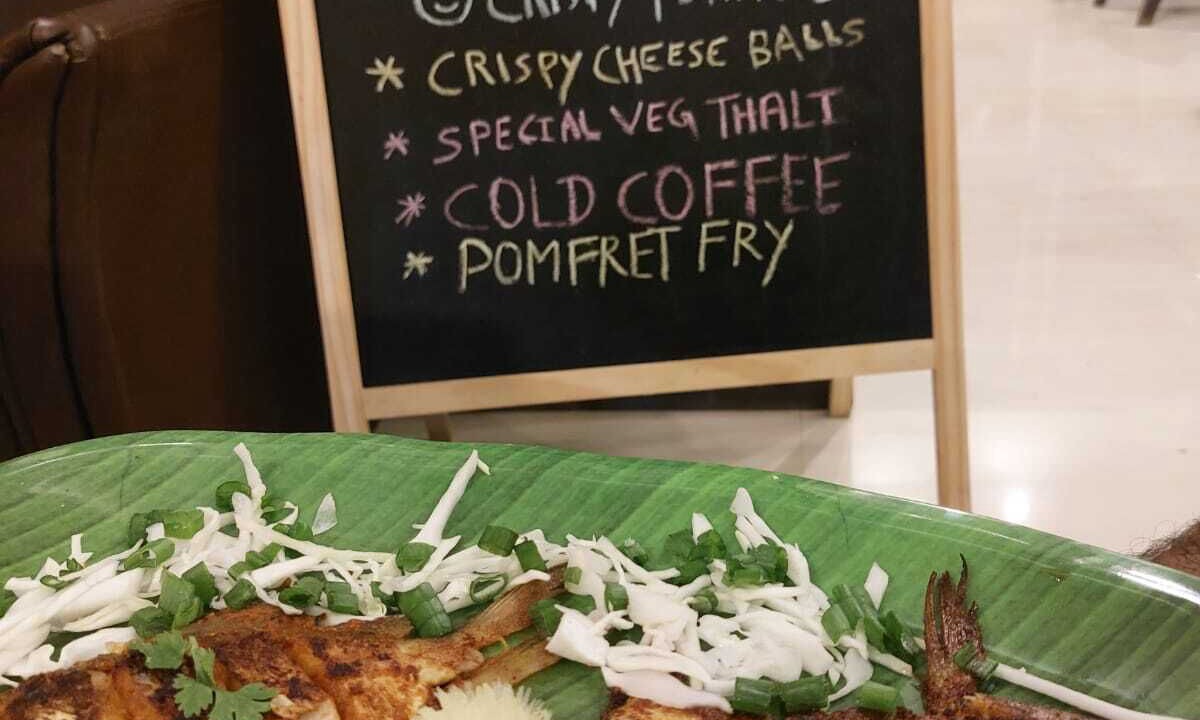 CRISPY
* CRISPY CHEESE BALLS
* SPECIAL VEG THALI
* COLD COFFEE
* POMFRET FRY